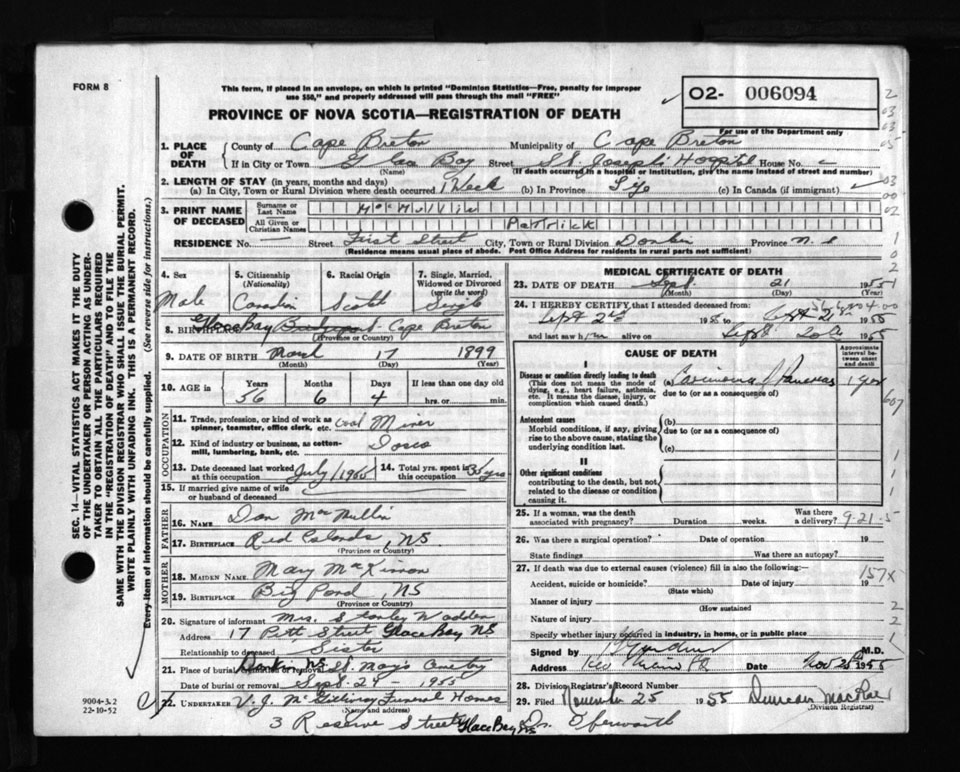 FORM 8
This form, if placed in an envelope, on which is printed "Dominion Statistics—Free, penalty for improper
use $50," and properly addressed will pass through the mail "FREE"
PROVINCE OF NOVA SCOTIA—REGISTRATION OF DEATH
O2- 006094
For use of the Department only
1. PLACE OF DEATH
County of Cape Breton Municipality of Cape Breton
If in City or Town Glace Bay Street St. Joseph's Hospital House No.
(Name) (If death occurred in a hospital or institution, give the name instead of street and number)
2. LENGTH OF STAY (in years, months and days)
(a) In City, Town or Rural Division where death occurred 1 Week (b) In Province Life (c) In Canada (if immigrant)
3. PRINT NAME OF DECEASED
Surname or Last Name
All Given or Christian Names Patrick
RESIDENCE No. — Street First Street City, Town or Rural Division Donkin Province N. S
(Residence means usual place of abode. Post Office Address for residents in rural parts not sufficient)
4. Sex Male
5. Citizenship (Nationality)
6. Racial Origin
7. Single, Married, Widowed or Divorced (write the word) Single
8. BIRTHPLACE Glace Bay Cape Breton
(Province or Country)
9. DATE OF BIRTH March 17 1899
(Month) (Day) (Year)
10. AGE in Years 56 Months 6 Days 4 If less than one day old
hrs. or min.
OCCUPATION
11. Trade, profession, or kind of work as spinner, teamster, office clerk, etc. Coal Miner
12. Kind of industry or business, as cotton-mill, lumbering, bank, etc. Dosco
13. Date deceased last worked at this occupation July
14. Total yrs. spent in this occupation yrs
15. If married give name of wife or husband of deceased
FATHER
16. NAME Dan MacMullin
17. BIRTHPLACE Red Islands, NS
(Province or Country)
MOTHER
18. MAIDEN NAME Mary MacKinnon
19. BIRTHPLACE Big Pond, NS
(Province or Country)
20. Signature of informant Mrs. Stanley Wadden
Address 17 Pitt Street Glace Bay NS
Relationship to deceased Sister
21. Place of burial, cremation or removal Donkin NS St. Mary's Cemetery
Date of burial or removal Sept. 24 - 1955
22. UNDERTAKER V. J. McGillivray Funeral Homes
(Name and address)
3 Reserve Street Glace Bay NS
MEDICAL CERTIFICATE OF DEATH
23. DATE OF DEATH Sept. 21 1955
(Month) (Day) (Year)
24. I HEREBY CERTIFY, that I attended deceased from:
Sept 2nd 1955 to 1955
and last saw him alive on Sept 20th 1955
CAUSE OF DEATH
Approximate interval between onset and death
I
Disease or condition directly leading to death
(This does not mean the mode of dying, e.g., heart failure, asthenia, etc. It means the disease, injury, or complication which caused death.)
(a) Carcinoma of Pancreas 1 year
due to (or as a consequence of)
Antecedent causes
Morbid conditions, if any, giving rise to the above cause, stating the underlying condition last.
(b)
due to (or as a consequence of)
(c)
II
Other significant conditions
contributing to the death, but not related to the disease or condition causing it.
25. If a woman, was the death associated with pregnancy? Duration weeks. Was there a delivery?
26. Was there a surgical operation? Date of operation 19
State findings Was there an autopsy?
27. If death was due to external causes (violence) fill in also the following:
157X
Accident, suicide or homicide? Date of injury 19
(State which)
Manner of injury
(How sustained
Nature of injury
Specify whether injury occurred in industry, in home, or in public place
Signed by M.D.
Address Date Nov 25 1955
28. Division Registrar's Record Number
29. Filed November 25 1955 Duncan MacRae
(Division Registrar)
SEC. 14—VITAL STATISTICS ACT MAKES IT THE DUTY
OF THE UNDERTAKER OR PERSON ACTING AS UNDER-
TAKER TO OBTAIN ALL THE PARTICULARS REQUIRED
IN THE "REGISTRATION OF DEATH" AND TO FILE THE
SAME WITH THE DIVISION REGISTRAR WHO SHALL ISSUE THE BURIAL PERMIT.
WRITE PLAINLY WITH UNFADING INK. THIS IS A PERMANENT RECORD.
Every item of information should be carefully supplied. (See reverse side for instructions.)
9004-3.2
22-10-52